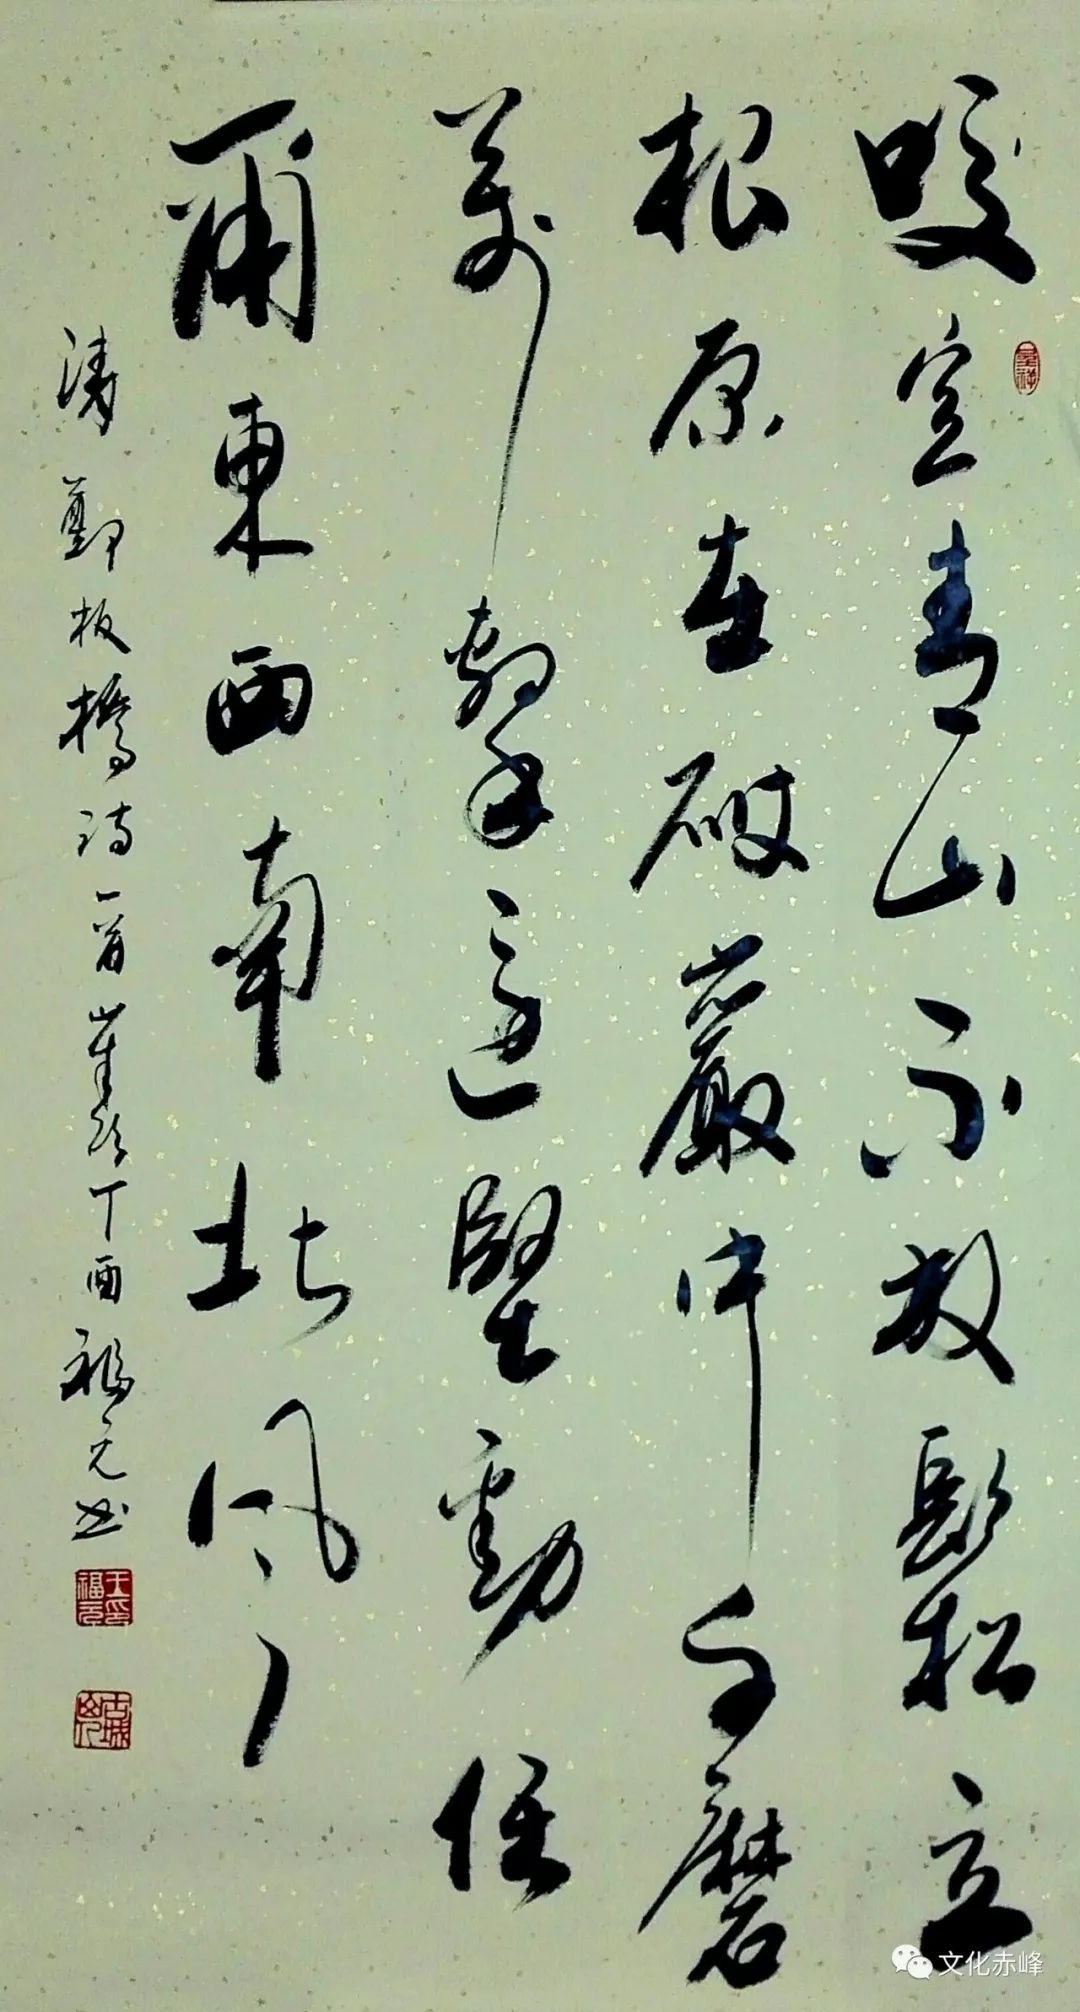 咬定青山不放鬆立
根原在破巖中千磨
萬擊還堅勁任
爾東西南北風
清鄭板橋詩一首歲次丁酉福元书
王印福元
文化赤峰